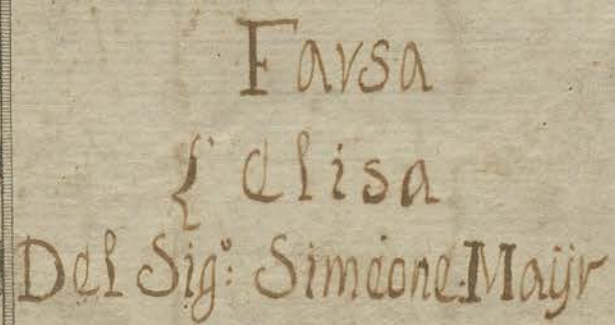 Farsa
L'Elisa
Del Sigº: Simeone Maÿr